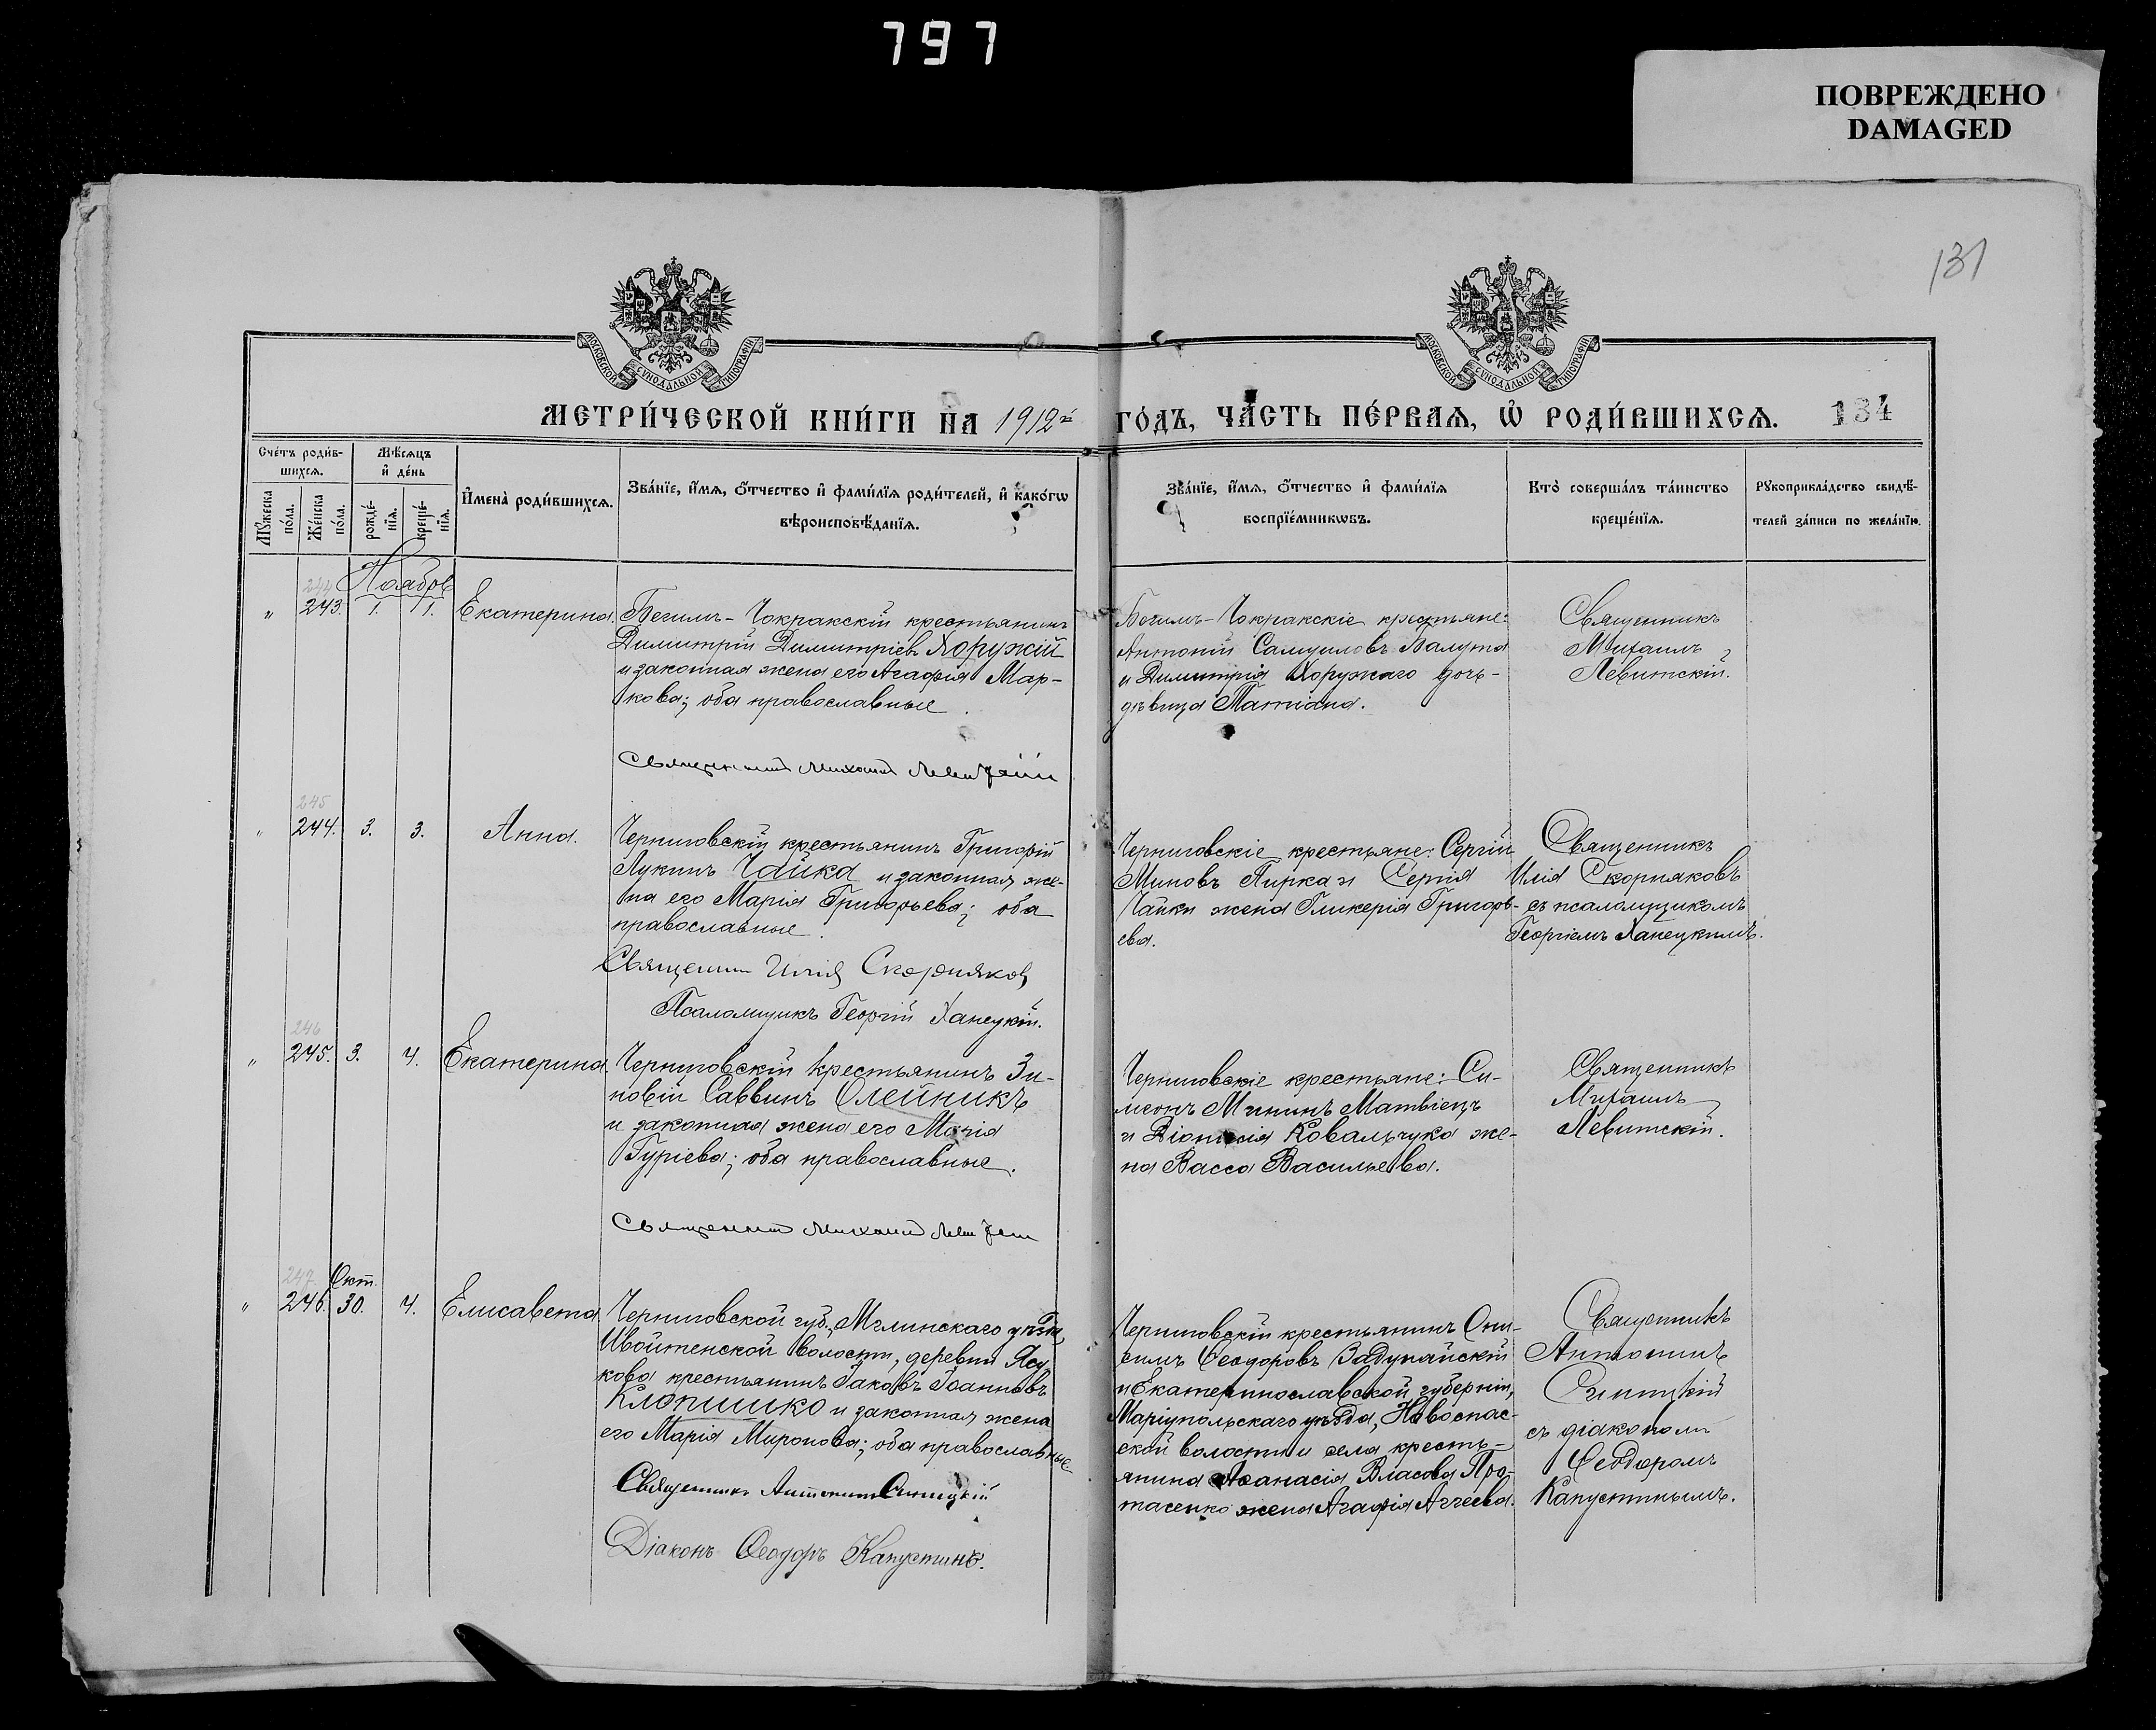 797
ПОВРЕЖДЕНО
DAMAGED
131
МОСКОВСКОЙ СУНОДАЛЬНОЙ ТИПОГРАФІИ
МОСКОВСКОЙ СУНОДАЛЬНОЙ ТИПОГРАФІИ
МЕТРИ́ЧЕСКОЙ КНИ́ГИ НА 1912й ГО́ДЪ, ЧА́СТЬ ПЕ́РВАѦ, Ѡ҆ РОДИ́ВШИХСѦ. 134
Сче́тъ роди́в-
шихсѧ.
Мѣ́сѧцъ
и҆ де́нь
Мꙋ́жеска
по́ла.
Же́нска
по́ла.
рожде́-
нїѧ.
креще́-
нїѧ.
И҆мена̀ роди́вшихсѧ.
Зва́нїе, и҆́мѧ, ѻ҆́тчество и҆ фами́лїѧ роди́телей, и҆ како́гѡ
вѣроисповѣ́данїѧ.
Зва́нїе, и҆́мѧ, ѻ҆́тчество и҆ фами́лїѧ
воспрїе́мникѡвъ.
Кто̀ соверша́лъ та́инство
креще́нїѧ.
Рꙋкоприкла́дство свидѣ́-
телей за́писи по жела́нїю.
Ноябрь
244
" 243. 1. 1. Екатерина.
Бегимъ-Чокракскій крестьянинъ
Димитрій Димитріевъ Хоружій
и законная жена его Агафія Мар-
кова; оба православные.
Священникъ Михаилъ Левитскій
Бегимъ-Чокракскіе крестьяне:
Антоній Самуиловъ Валута
и Димитрія Хоружаго дочь-
дѣвица Татіана.
Священникъ
Михаилъ
Левитскій.
245
" 244. 3. 3. Анна.
Черниговскій крестьянинъ Григорій
Лукинъ Чайка и законная же-
на его Марія Григорьева; оба
православные.
Священник Илія Скорняковъ
Псаломщикъ Георгій Ханецкій.
Черниговскіе крестьяне: Сергій
Миновъ Пирка и Сергія
Чайки жена Гликерія Григорь-
ева.
Священникъ
Илія Скорняковъ
съ псаломщикомъ
Георгіемъ Ханецкимъ.
246
" 245. 3. 4. Екатерина.
Черниговскій крестьянинъ Зи-
новій Саввинъ Олейникъ
и законная жена его Марія
Гуріева; оба православные.
Священникъ Михаилъ Левитскій
Черниговскіе крестьяне: Си-
меонъ Мининъ Матвіецъ
и Діонисія Ковальчука же-
на Васса Васильева.
Священникъ
Михаилъ
Левитскій.
247. Окт.
" 246. 30. 4. Елисавета.
Черниговской губ., Мглинскаго уѣзда,
Ивойтенской волости, деревни
крестьянинъ Іаковъ Іоанновъ
Клопишко и законная жена
его Марія Миронова; оба православные
Священникъ Антонинъ Синицкій
Діаконъ Ѳеодоръ Капустинъ.
Черниговскій крестьянинъ Они-
симъ Ѳеодоровъ Задунайскій
и Екатеринославской губерніи,
Маріупольскаго уѣзда, Новоспас-
ской волости и села кресть-
янина Аѳанасія Власова Про-
тасенко жена Агафія Аггеева.
Священникъ
Антонинъ
Синицкій
съ діакономъ
Ѳеодоромъ
Капустинымъ.